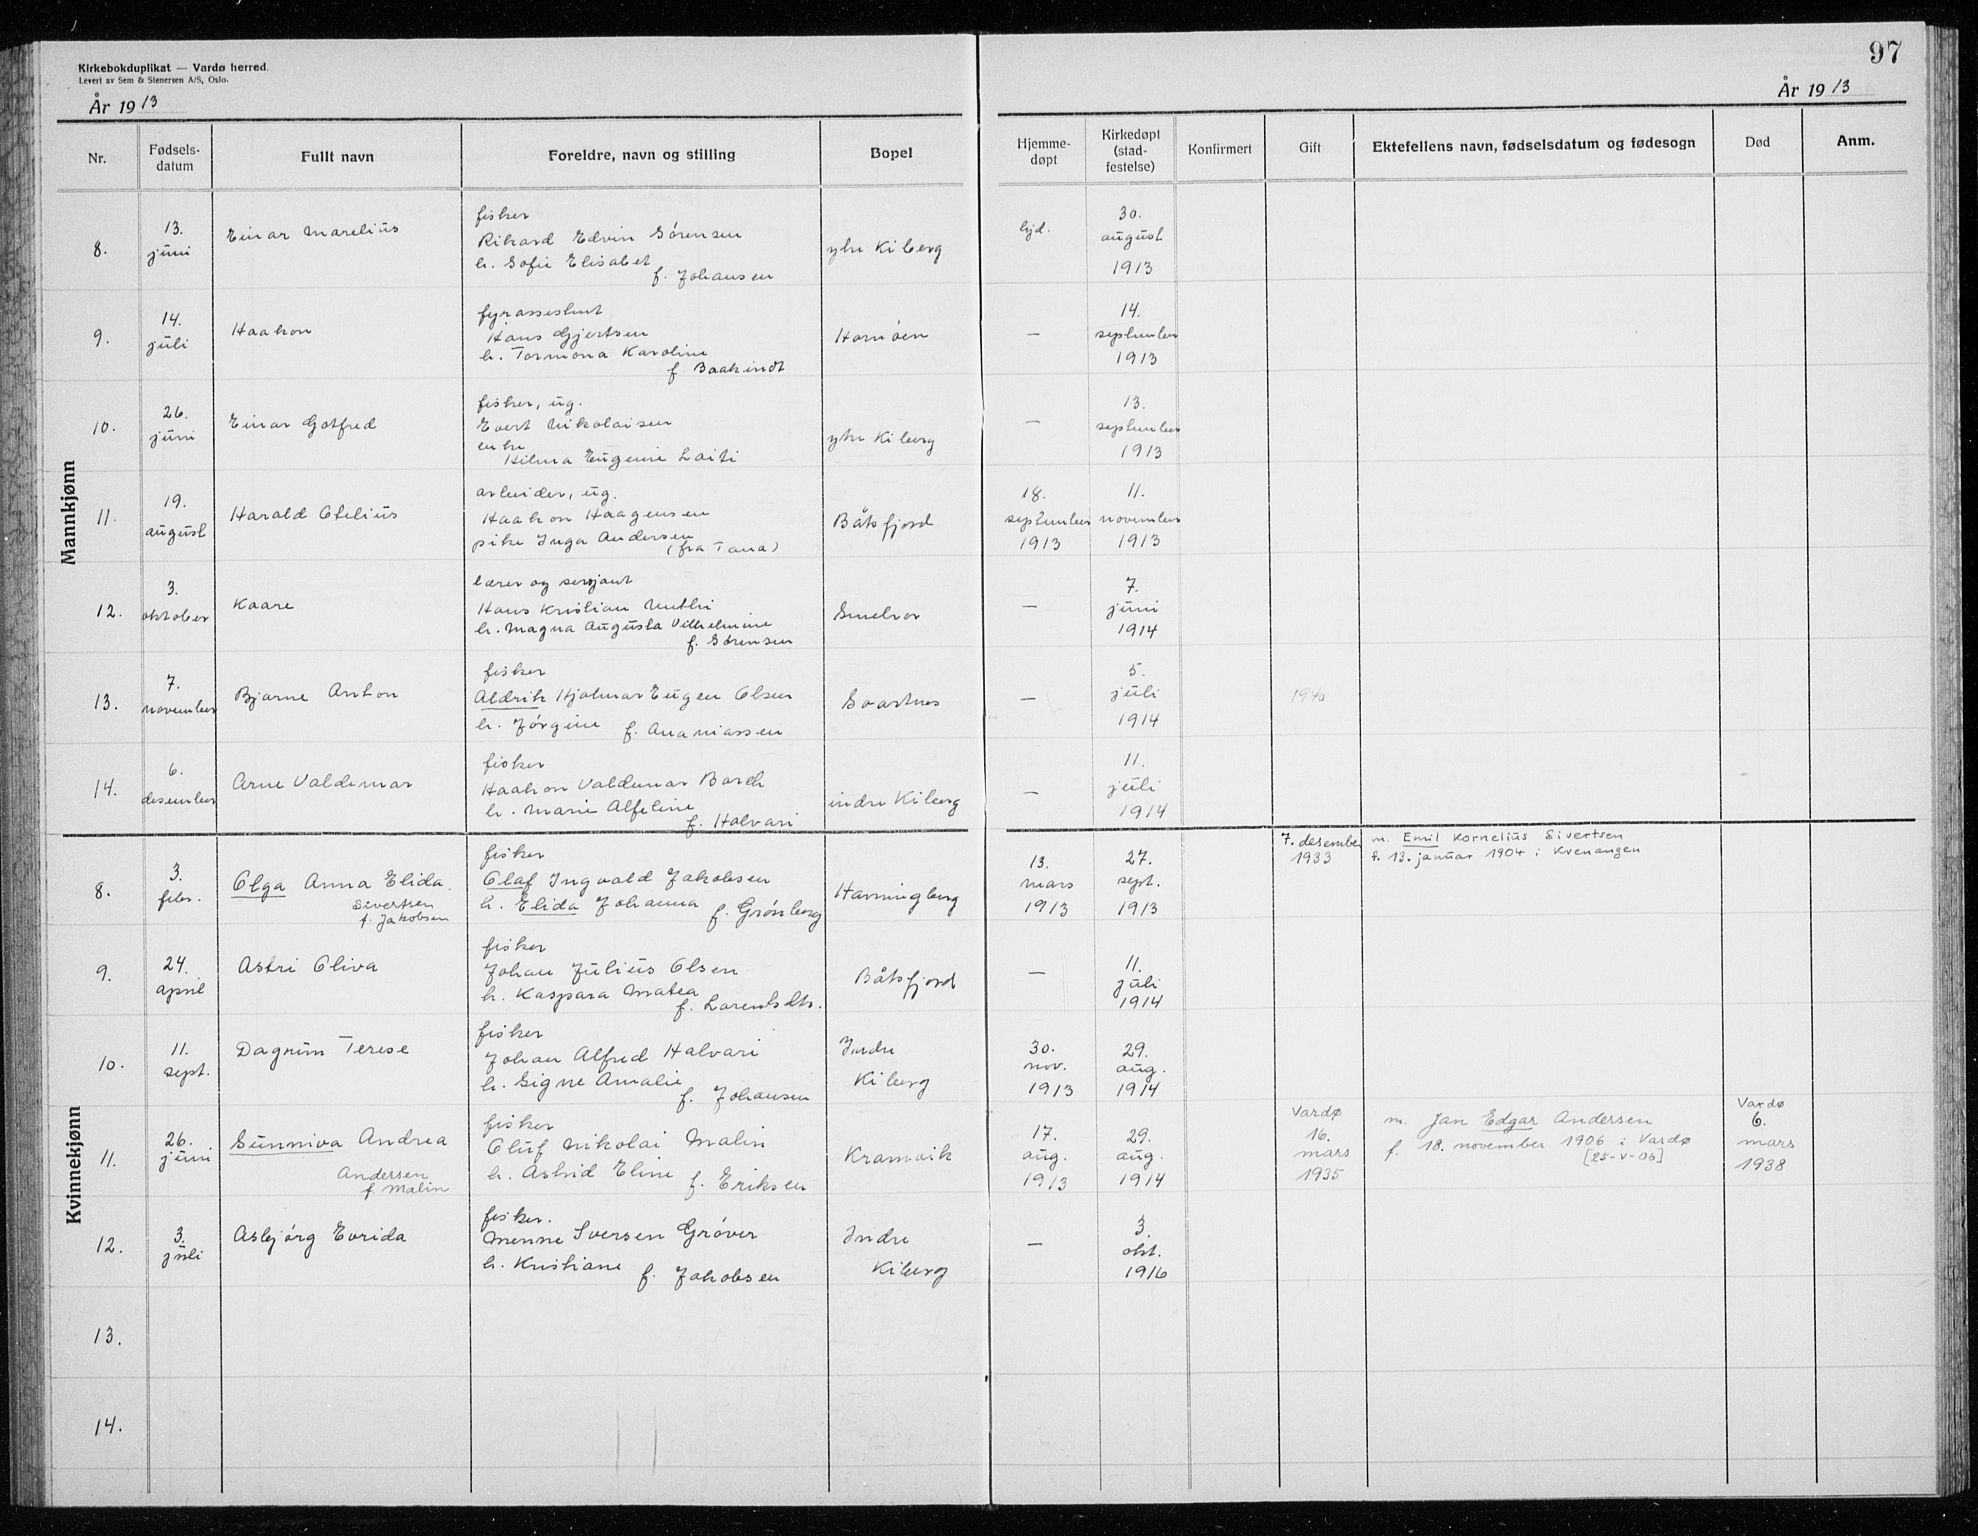 97
Kirkebokduplikat — Vardø herred.
Levert av Sem & Stenersen A/S, Oslo.
År 1913
År 1913
Nr.
Fødsels-
datum
Fullt navn
Foreldre, navn og stilling
Bopel
Hjemme-
døpt
Kirkedøpt
(stad-
festelse)
Konfirmert
Gift
Ektefellens navn, fødselsdatum og fødesogn
Død
Anm.
Mannkjønn
8.
13.
juni
Einar Marelius
fisker
Rikard Edvin Sørensen
h. Sofie Elisabet
f. Johansen
ytre Kiberg
hjd.
30.
august
1913
9.
14.
juli
Haakon
fyrassistent
Hans Gjertsen
h. Tormona Karoline
f. Baakindt
Hornøen
—
14.
september
1913
10.
26.
juni
Einar Gotfred
fisker, ug.
Evert Nikolaisen
enke
Hilma Eugenie Laiti
ytre Kiberg
—
13.
september
1913
11.
19.
august
Harald Ofelius
arbeider, ug.
Haakon Haagensen
pike Inga Andersen
(fra Tana)
Båtsfjord
18.
september
1913
11.
november
1913
12.
3.
oktober
Kaare
lærer og sersjant
Hans Kristian
h. Magna Augusta Vilhelmine
f. Sørensen
Smelror
—
7.
juni
1914
13.
7.
november
Bjarne Anton
fisker
Aldrik Hjalmar Eugen Olsen
h. Jørgine f. Ananiassen
Svartnes
—
5.
juli
1914
1940
14.
6.
desember
Arne Valdemar
fisker
Haakon Valdemar Borch
h. Marie Alfeline
f. Halvari
indre Kiberg
—
11.
juli
1914
Kvinnekjønn
8.
3.
febr.
Olga Anna Elida
Sivertsen
f. Jakobsen
fisker
Olaf Ingvald Jakobsen
h. Elida Johanna f. Grønberg
Havningberg
13.
mars
1913
27.
sept.
1913
7. desember
1933
m. Emil Kornelius Sivertsen
f. 13. januar 1904 i Kvenangen
9.
24.
april
Astri Oliva
fisker
Johan Julius Olsen
h. Kaspara Matea
f. Lorentsdtr.
Båtsfjord
—
11.
juli
1914
10.
11.
sept.
Dagrun Terese
fisker
Johan Alfred Halvari
h. Signe Amalie
f. Johansen
Indre
Kiberg
30.
nov.
1913
29.
aug.
1914
11.
26.
juni
Gunniva Andrea
Andersen
f. Malin
fisker
Oluf Nikolai Malin
h. Astrid Eline f. Eriksen
Kramvik
17.
aug.
1913
29.
aug.
1914
Vardø
16.
mars
1935
m. Jan Edgar Andersen
f. 18. november 1906 i Vardø
[25-V-06]
Vardø
6.
mars
1938
12.
3.
juli
Asbjørg Evrida
fisker.
Menne Iversen Grøver
h. Kristiane f. Jakobsen
Indre
Kiberg
—
3.
okt.
1916
13.
14.